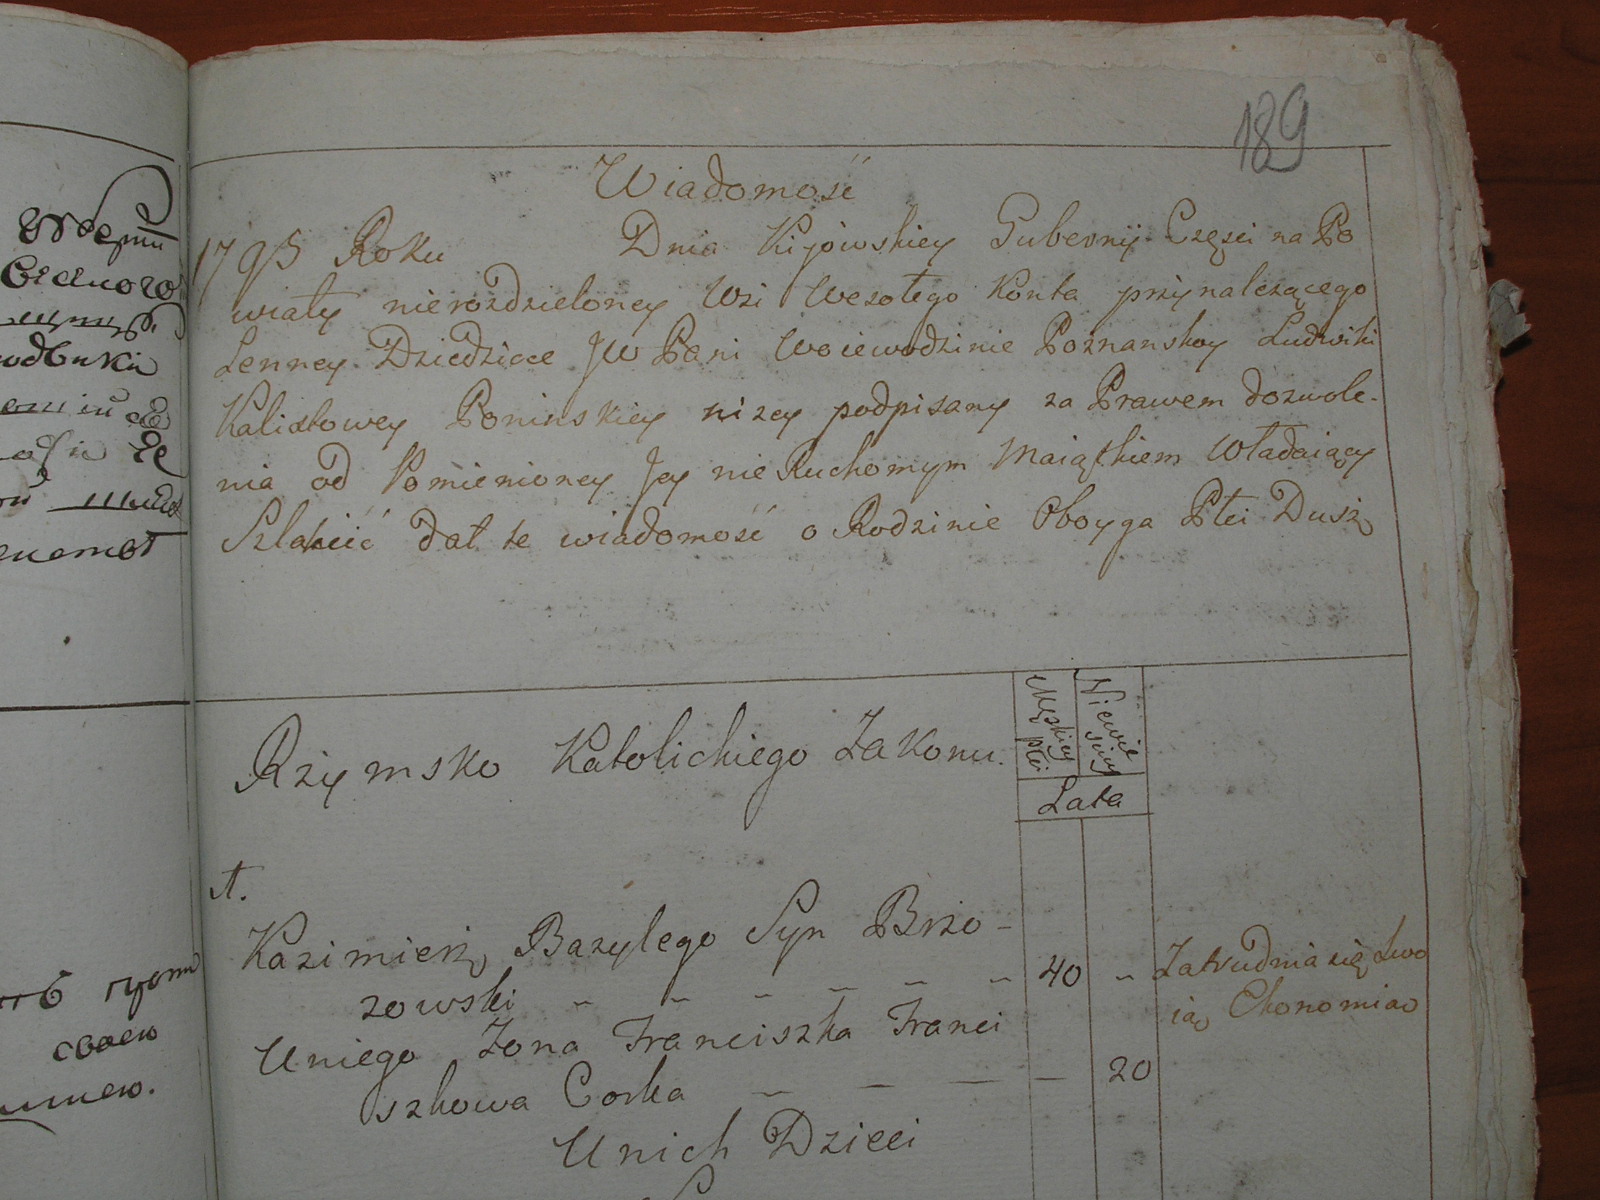 189
Wiadomość
1795 Roku Dnia Kijowskiey Gubernij Części na Po
wiaty nierozdzieloney Wsi Wesołego Konta przynalezącego
Lenney Dziedzice JW Pani Woiewodzinie Poznanskoy Ludwiki
Kalixtowey Poninskiey nizey podpisany za Prawem dozwole-
nia od Pomienioney Jey nie Ruchomym Maiątkiem Władaiący
Szlachcic dał te wiadomość o Rodzinie Oboyga Płci Dusz
Rzymsko Katolickiego Zakonu.
Męskiey płci
Niewie
sciey
Lata
A.
Kazimierz Bazylego Syn Brzo-
zowski 40 Zatrudnia się Swo
ią Ekonomią
Uniego Zona Franciszka Franci
szkowa Corka 20
Unich Dzieci
своею